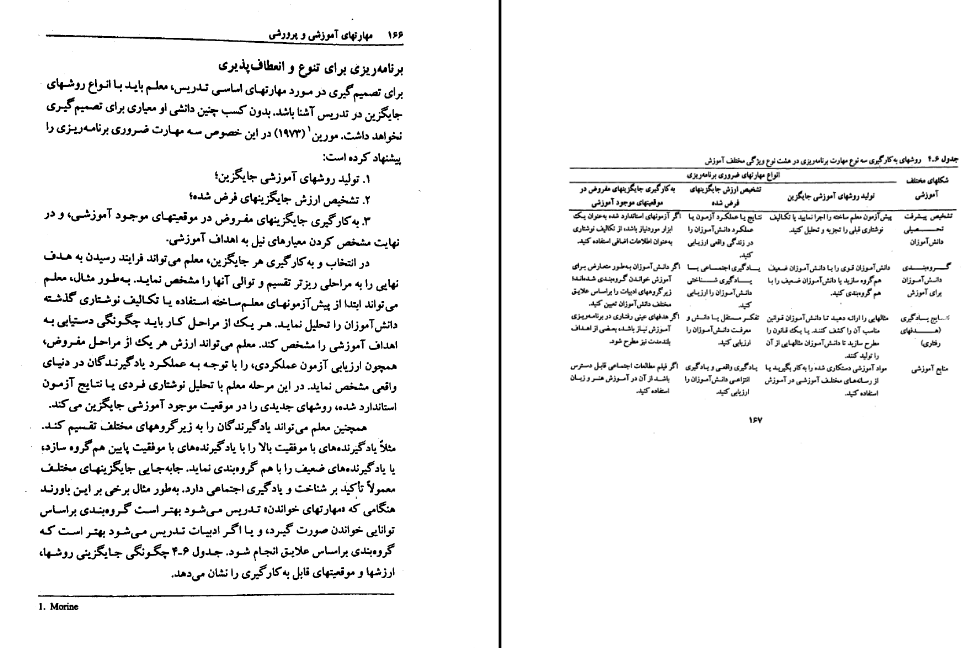 ۱۶۶ مهارتهای آموزشی و پرورشی
برنامه‌ریزی برای تنوع و انعطاف‌پذیری
برای تصمیم‌گیری در مورد مهارتهای اساسی تدریس، معلم باید با انواع روشهای
جایگزین در تدریس آشنا باشد. بدون کسب چنین دانشی او معیاری برای تصمیم‌گیری
نخواهد داشت. مورین۱ (۱۹۷۳) در این خصوص سه مهارت ضروری برنامه‌ریزی را
پیشنهاد کرده است:
۱. تولید روشهای آموزشی جایگزین؛
۲. تشخیص ارزش جایگزینهای فرض شده؛
۳. به‌کارگیری جایگزینهای مفروض در موقعیتهای موجود آموزشی، و در
نهایت مشخص کردن معیارهای نیل به اهداف آموزشی.
در انتخاب و به‌کارگیری هر جایگزین، معلم می‌تواند فرایند رسیدن به هدف
نهایی را به مراحلی ریزتر تقسیم و توالی آنها را مشخص نماید. به‌طور مثال، معلم
می‌تواند ابتدا از پیش‌آزمونهای معلم‌ساخته استفاده یا تکالیف نوشتاری گذشته
دانش‌آموزان را تحلیل نماید. هر یک از مراحل کار باید چگونگی دستیابی به
اهداف آموزشی را مشخص کند. معلم می‌تواند ارزش هر یک از مراحل مفروض،
همچون ارزیابی آزمون عملکردی، را با توجه به عملکرد یادگیرندگان در دنیای
واقعی مشخص نماید. در این مرحله معلم با تحلیل نوشتاری فردی یا نتایج آزمون
استاندارد شده، روشهای جدیدی را در موقعیت موجود آموزشی جایگزین می‌کند.
همچنین معلم می‌تواند یادگیرندگان را به زیرگروههای مختلف تقسیم کند.
مثلاً یادگیرنده‌های با موفقیت بالا را با یادگیرنده‌های با موفقیت پایین هم‌گروه سازد،
یا یادگیرنده‌های ضعیف را با هم گروه‌بندی نماید. جابه‌جایی جایگزینهای مختلف
معمولاً تأکید بر شناخت و یادگیری اجتماعی دارد. به‌طور مثال برخی بر این باورند
هنگامی که «مهارتهای خواندن» تدریس می‌شود بهتر است گروه‌بندی براساس
توانایی خواندن صورت گیرد، و یا اگر ادبیات تدریس می‌شود بهتر است که
گروه‌بندی براساس علایق انجام شود. جدول ۶-۴ چگونگی جایگزینی روشها،
ارزشها و موقعیتهای قابل به‌کارگیری را نشان می‌دهد.
1. Morine
جدول ۴.۶ روشهای به‌کارگیری سه نوع مهارت برنامه‌ریزی در هشت نوع ویژگی مختلف آموزش
انواع مهارتهای ضروری برنامه‌ریزی
شکلهای مختلف
آموزشی
تولید روشهای آموزشی جایگزین
تشخیص ارزش جایگزینهای
فرض شده
به‌کارگیری جایگزینهای مفروض در
موقعیتهای موجود آموزشی
تشخیص پیشرفت
تحصیلی
دانش‌آموزان
پیش‌آزمون معلم ساخته را اجرا نمایید یا تکالیف
نوشتاری قبلی را تجزیه و تحلیل کنید.
نتایج یا عملکرد آزمون یا
عملکرد دانش‌آموزان را
در زندگی واقعی ارزیابی
کنید.
اگر آزمونهای استاندارد شده به‌عنوان یک
ابزار موردنیاز باشد، از تکالیف نوشتاری
به‌عنوان اطلاعات اضافی استفاده کنید.
گروه‌بندی
دانش‌آموزان
برای آموزش
دانش‌آموزان قوی را با دانش‌آموزان ضعیف
هم‌گروه سازید یا دانش‌آموزان ضعیف را با
هم گروه‌بندی کنید.
یادگیری اجتماعی یا
یادگیری شناختی
دانش‌آموزان را ارزیابی
کنید.
اگر دانش‌آموزان به‌طور متعارض برای
آموزش خواندن گروه‌بندی شده‌اند؛
زیرگروههای ادبیات را براساس علایق
مختلف دانش‌آموزان تعیین کنید.
نتایج یادگیری
(هدفهای
رفتاری)
مثالهایی را ارائه دهید تا دانش‌آموزان قوانین
مناسب آن را کشف کنند. یا یک قانون را
مطرح سازید تا دانش‌آموزان مثالهایی از آن
را تولید کنند.
تفکر مستقل یا دانش و
معرفت دانش‌آموزان را
ارزیابی کنید.
اگر هدفهای عینی رفتاری در برنامه‌ریزی
آموزش نیاز باشد، بعضی از اهداف
بلندمدت نیز مطرح شود.
منابع آموزشی
مواد آموزشی دستکاری شده را به‌کار بگیرید یا
از رسانه‌های مختلف آموزشی در آموزش
استفاده کنید.
یادگیری واقعی و یادگیری
انتزاعی دانش‌آموزان را
ارزیابی کنید.
اگر فیلم مطالعات اجتماعی قابل دسترس
باشد، از آن در آموزش هنر و زبان
استفاده کنید.
۱۶۷